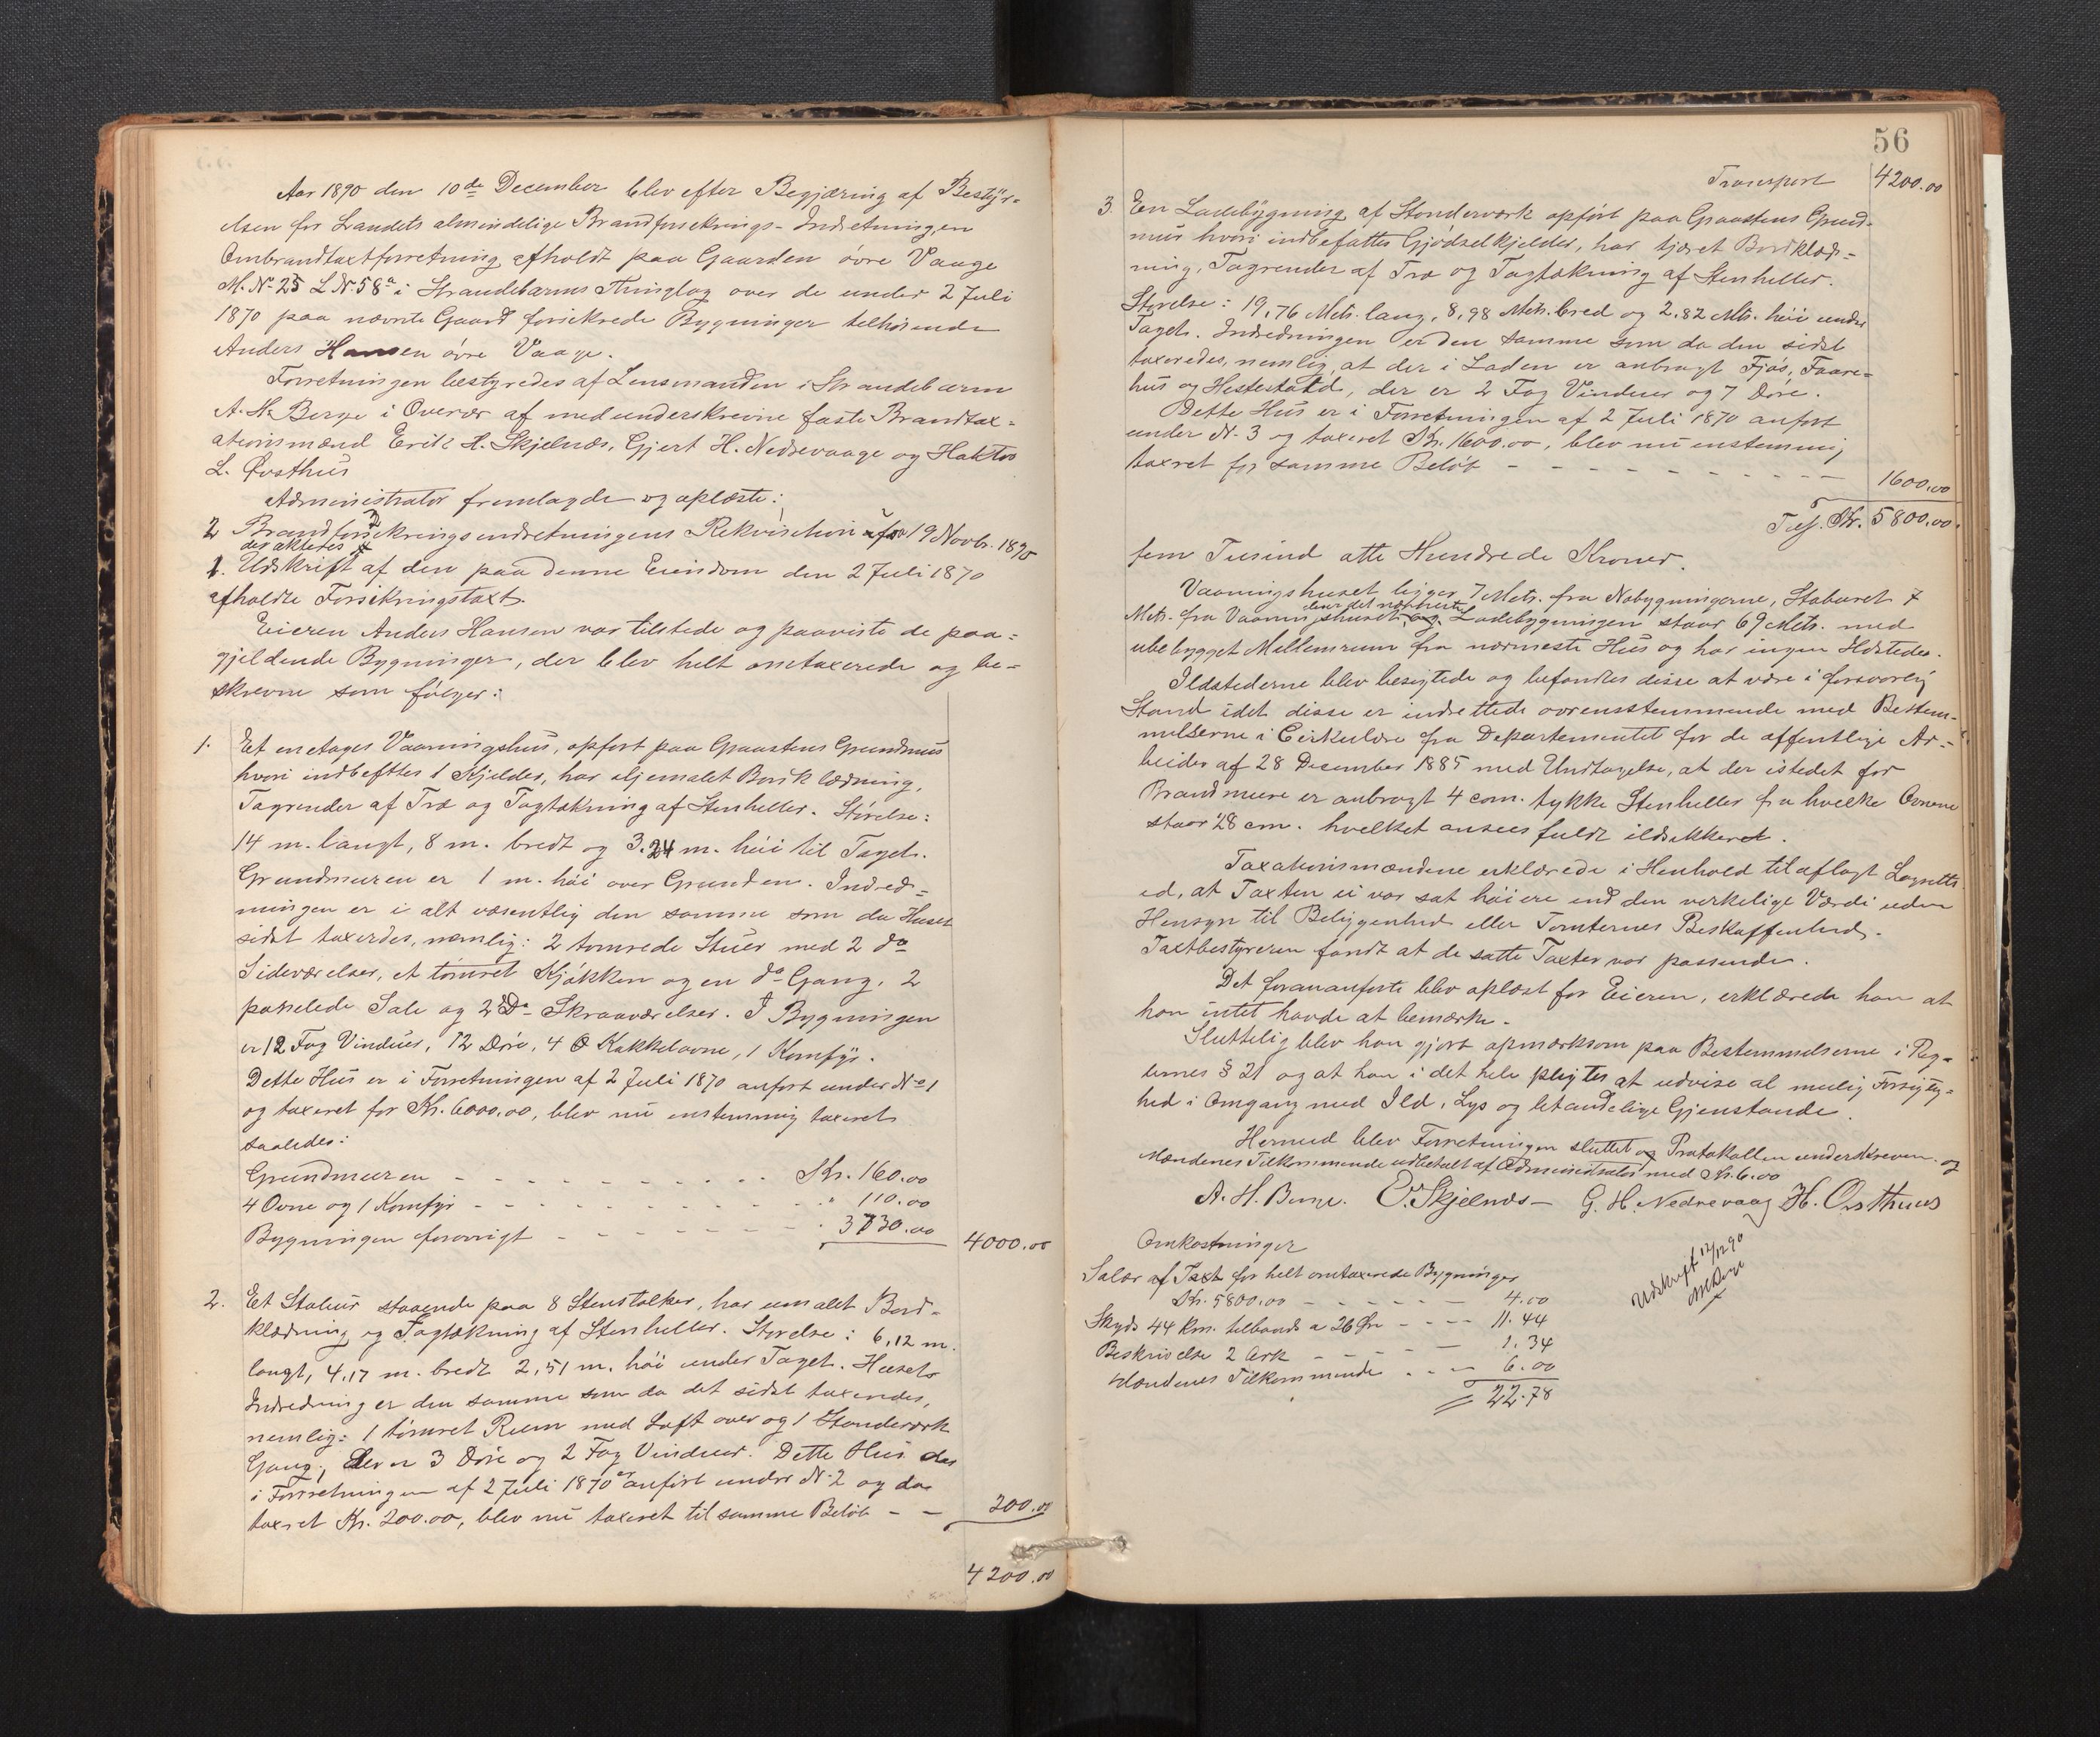 Aar 1890 den 10de December blev efter Begjæring af Bestyr-
elsen for Landets almindelige Brandforsikrings-Indretningen
Ombrandtaxtforretning afholdt paa Gaarden övre Vaage
M. No 25 L No 58a i Strandebarms Thinglag over de under 2 Juli
1870 paa nævnte Gaard forsikrede Bygninger tilhörende
Anders Hansen övre Vaage.
Forretningen bestyredes af Lensmanden i Strandebarm
A. H. Berge i Overvær af medunderskrevne faste Brandtax-
ationsmænd Erik H. Skjelnæs, Gjert H. Nedrevaage og Haktor
L. Østhus
Administrator fremlagde og oplæste:
2 Brandforsikringsindretningens Rekvisition af 19 Novbr. 1890
der akteres
1. Udskrift af den paa denne Eiendom den 2 Juli 1870
afholdte Forsikringstaxt.
Eieren Anders Hansen var tilstede og paaviste de paa-
gjeldende Bygninger, der blev helt omtaxerede og be-
skrevne som fölger:
1. Et en etages Vaaningshus, opfört paa Graastens Grundmur
hvori indbefttes 1 Kjelder, har oljemalet Bordklædning,
Tagrender af Træ og Tagtækning af Stenheller. Störelse:
14 m. langt, 8 m. bredt og 3.24 m. höi til Taget.
Grundmuren er 1 m. höi over Grunden. Indred-
ningen er i alt væsentlig den samme som da Huset
sidst taxerdes, nemlig: 2 tömrede Stuer med 2 do
Sideværelser, et tömret Kjökken og en do Gang. 2
panelede Sale og 2 Do Skraaværelser. I Bygningen
er 12 Fag Vinduer, 12 Döre, 4 Kakkelovne, 1 Komfyr.
Dette Hus er i Forretningen af 2 Juli 1870 anfört under No 1
og taxeret for Kr. 6000.00, blev nu enstemmig taxeret
saaledes:
Grundmuren - - - - - - - - - - Kr. 160.00
4 Ovne og 1 Komfyr - - - - - - - - - " 110.00
Bygningen forövrigt - - - - - - - " 3730.00 4000.00
2. Et Stabur staaende paa 8 Stenstolker, har umalet Bord-
klædning og Tagtækning af Stenheller. Störelse: 6,12 m.
langt, 4,17 m. bredt 2,51 m. höi under Taget. Husets
Indredning er den samme som da det sidst taxeredes,
nemlig: 1 tömret Rum med Loft over og 1 Stonderværk
Gang; der er 3 Döre og 2 Fag Vinduer. Dette Hus der
i Forretningen af 2 Juli 1870 er anfört under No 2 og da
taxeret Kr. 200.00, blev nu taxeret til samme Belöb - - 200.00
4200.00
56
Transport 4200.00
3. En Ladebygning af Stonderværk opfört paa Graastens Grund-
mur hvori indbefattes Gjödselkjelder, har tjæret Bordklæd-
ning, Tagrender af Træ og Tagtækning af Stenheller.
Störelse: 19,76 Metr. lang, 8,98 Metr. bred og 2,82 Mtr. höi under
Taget. Indredningen er den samme som da den sidst
taxeredes, nemlig, at der i Laden er anbragt Fjös, Faare-
hus og Hestestald, der er 2 Fag Vinduer og 7 Döre.
Dette Hus er i Forretningen af 2 Juli 1870 anfört
under No 3 og taxeret Kr. 1600.00, blev nu enstemmig
taxret for samme Belöb - - - - - - - - - 1600.00
Tils. Kr. 5800.00
fem Tusind otte Hundrede Kroner.
Vaaningshuset ligger 7 Metr. fra Nabygningerne, Staburet 7
Metr. fra Vaaningshuset, der er det nærmeste, og Ladebygningen staar 69 Metr. med
ubebygget Mellemrum fra nærmeste Hus og har ingen Ildsteder.
Ildstederne blev besigtede og befandtes disse at være i forsvarlig
Stand idet disse er indrettede overensstemmende med Bestem-
melserne i Cirkulære fra Departementet for de offentlige Ar-
beider af 28 December 1885 med Undtagelse, at der istedet for
Brandmure er anbragt 4 com. tykke Stenheller fra hvilke Ovnene
staar 28 cm. hvilket ansees fuldt ildsikkert.
Taxationsmændene erklærede i Henhold til aflagt Lagretts-
ed, at Taxten ei var sat höiere end den verkelige Værdi uden
Hensyn til Beligenhed eller Tomternes Beskaffenhed.
Taxtbestyreren fandt at de satte Taxter var passende.
Det forananförte blev oplæst for Eieren, erklærede han at
han intet havde at bemærke.
Sluttelig blev han gjort opmærksom paa Bestemmelserne i Reg-
lernes § 21 og at han i det hele pligter at udvise al mulig Forsigtig-
hed i Omgang med Ild, Lys og letandelige Gjenstande.
Hermed blev Forretningen sluttet og Protokollen underskreven og
Mændenes Tilkommende udbetalt af Administrator med Kr. 6.00
A. H. Berge. E. Skjelnæs G. H. Nedrevaag H. Østhuus
Omkostninger
Salær af Taxt for helt omtaxerede Bygninger
Kr. 5800.00 - - - - - 4.00
Skyds 44 km. tilbaads a 26 Øre - - - - 11.44
Beskrivelse 2 Ark - - - - - 1.34
Mændenes Tilkommende - - - 6.00
22.78
Udskrift 12/12 90
AHBerge